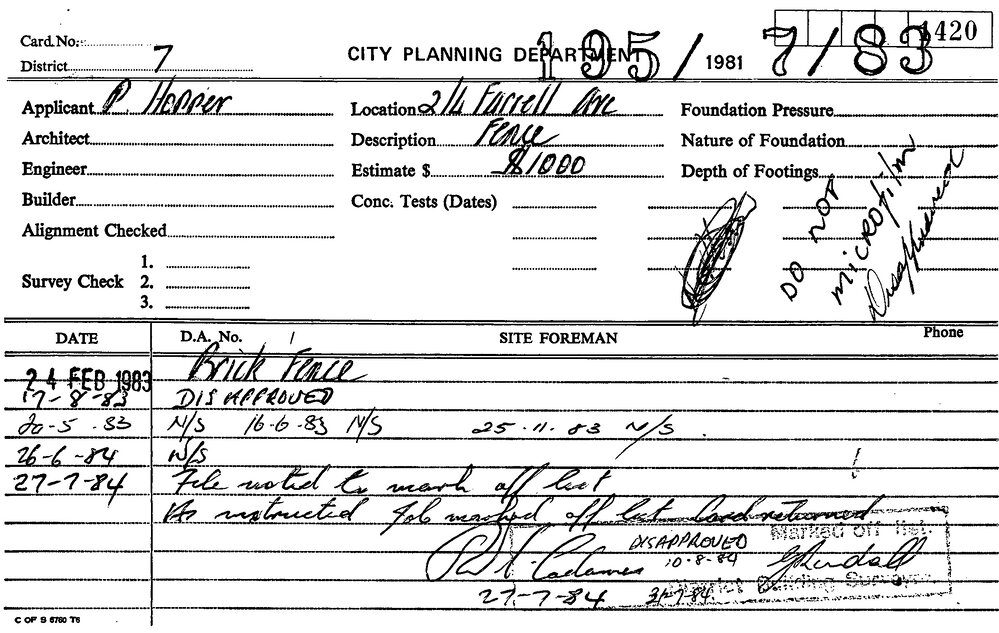 Card. No.
1420
District 7
CITY PLANNING DEPARTMENT 195/ 1981 7/83
Applicant P. Hopper Location 2/4 Farrell Ave Foundation Pressure
Architect Description Fence Nature of Foundation
Engineer Estimate $ $1000 Depth of Footings
Builder Conc. Tests (Dates)
Alignment Checked
DO NOT
MICROFILM
Disapproved
1.
Survey Check 2.
3.
DATE D.A. No. SITE FOREMAN Phone
24 FEB 1983 Brick Fence
17-8-83 DISAPPROVED
20-5-83 N/S 16-6-83 N/S 25-11-83 N/S
26-6-84 N/S
27-7-84 File noted to mark off list
As instructed Job marked off list Card returned
DISAPPROVED Marked off list.
10-8-84
District Building Surveyor
27-7-84 31-7-84
C OF S 6760 T6